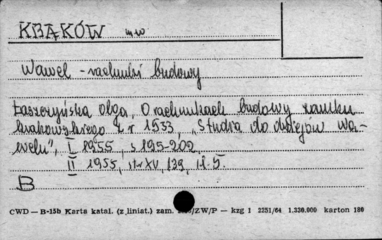 KRĄKÓW m.w
Wawel - rachunki budowy
Łaszczyńska Olga, O rachunkach budowy zamku
krakowskiego z r 1533, "Studia do dziejów Wa-
welu", I 1955, s 195-202,
II 1955, It XV, 139, il. 5.
B
CWD — B-15b Karta katal. (z liniat.) zam. /ZW/P — kzg 1 2251/64 1.230.000 karton 180